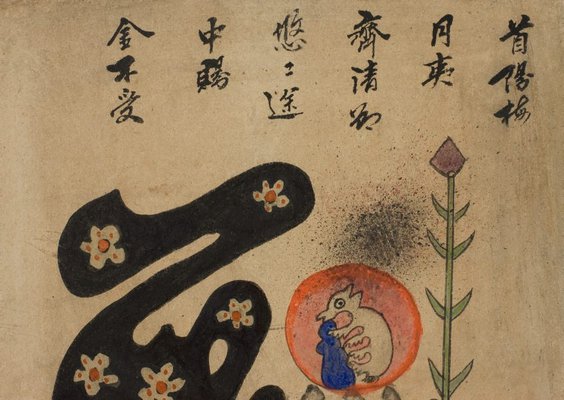 首陽梅
月夷
齊清節
悠々途
中賜
金不受